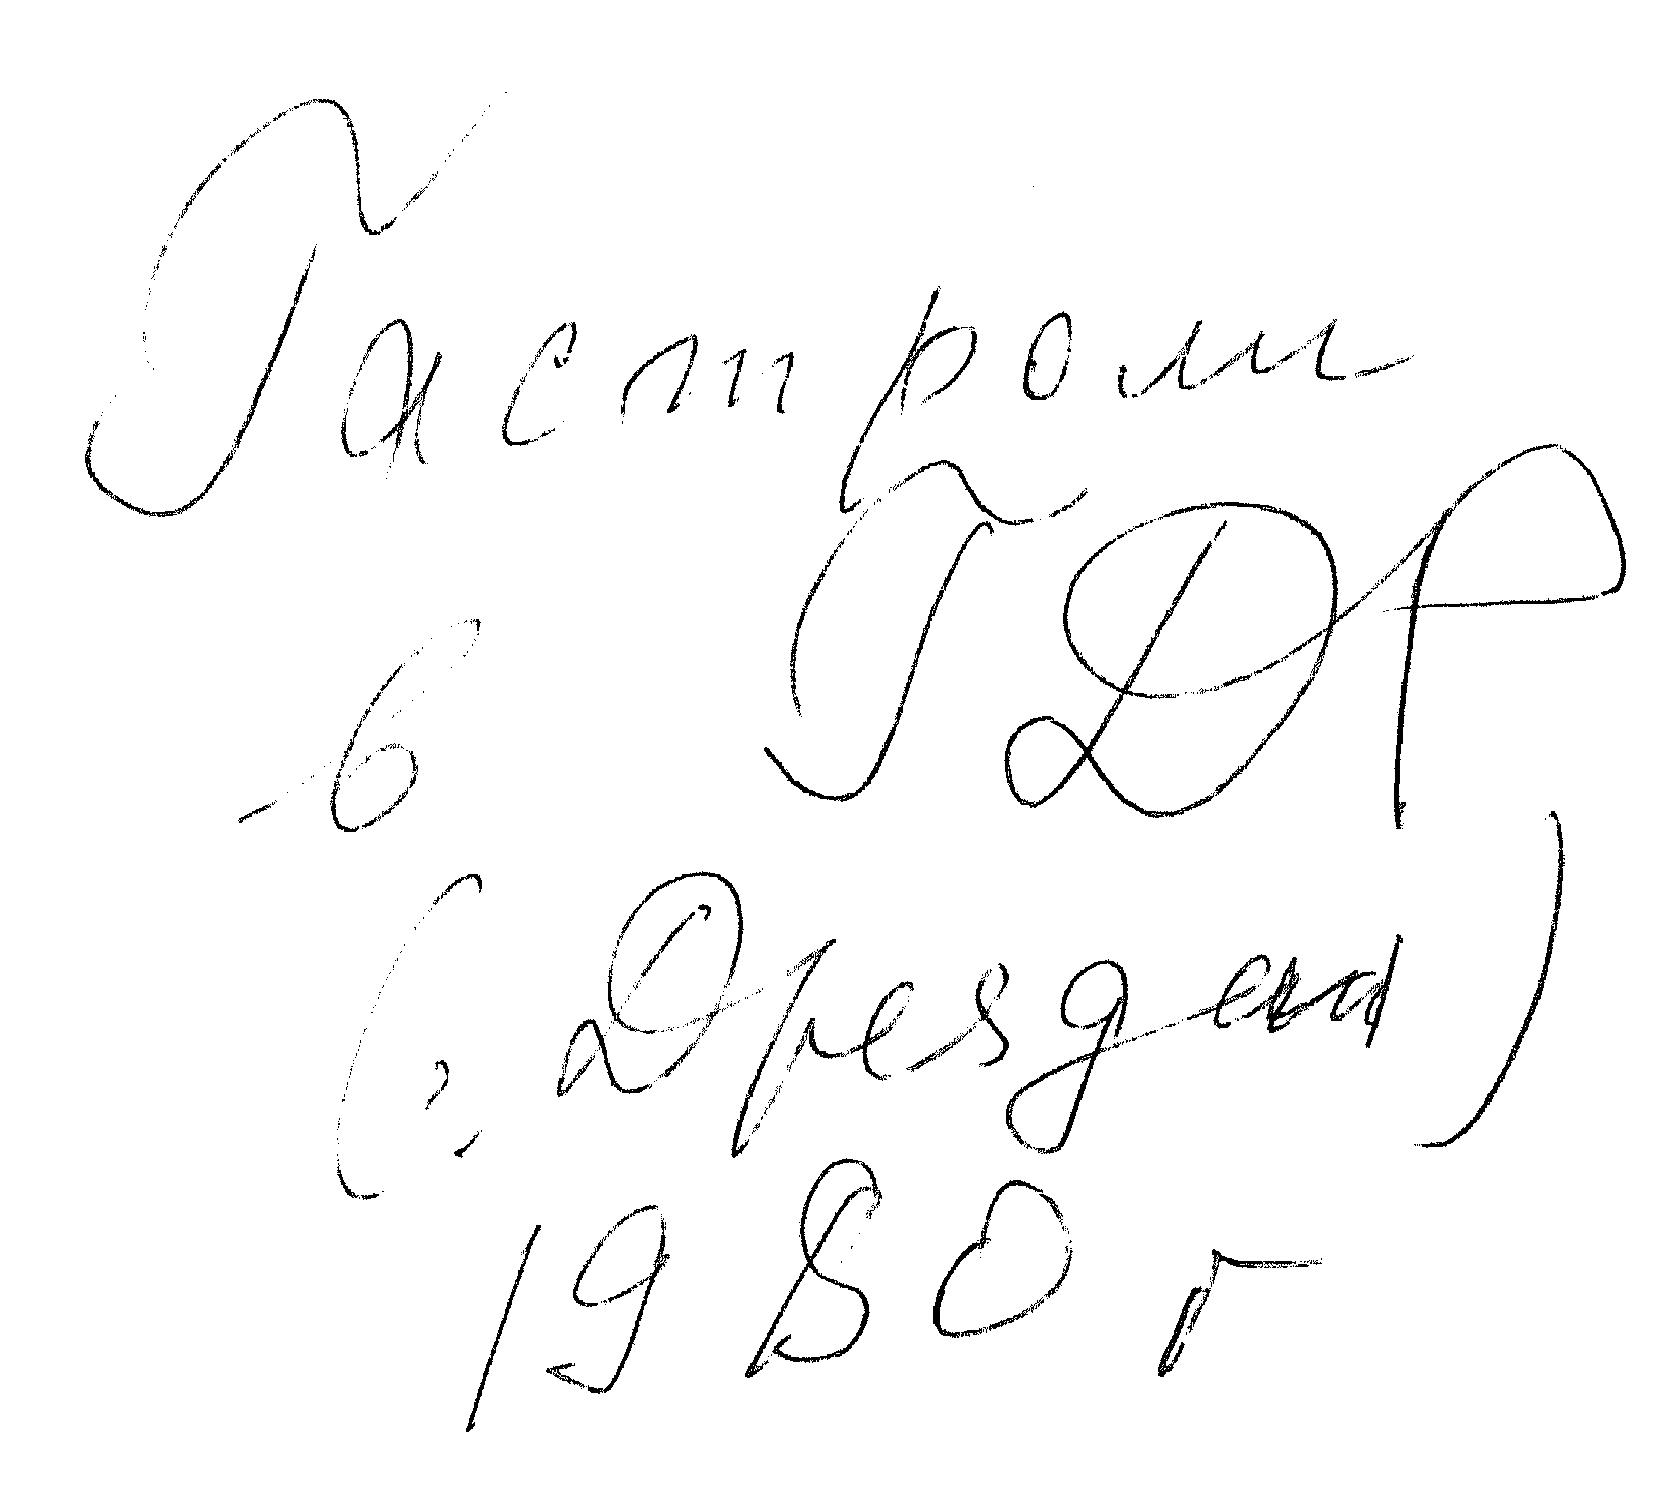 Гастроли
в ГДР
(г. Дрезден)
1980 г